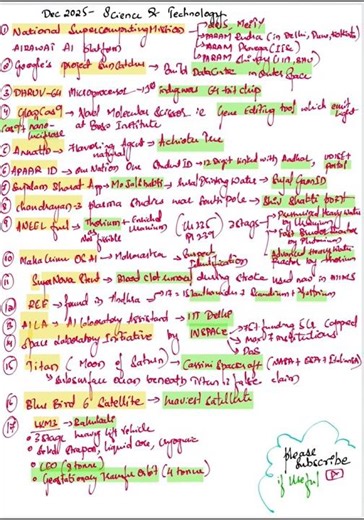 Dec 2025- Science & Technology
① National Supercomputing Mission → DST, MeitY
AIRAWAT AI platform → PARAM Rudra (in Delhi, Pune, Kolkata)
→ PARAM Pravega (IISc)
→ PARAM Shivay (IIT, BHU)
② Google's project Suncatcher → Build Data Centre in Outer Space
③ DHRUV-64 Microprocessor → 1st indigenous 64-bit chip
④ GlowCas9 → Novel Molecular Scissors i.e. Gene Editing tool which emit light
Cas9 + nano-luciferase at Bose Institute
⑤ Annatto → natural Agent →
⑥ APAAR ID → One Nation One Student ID → 12 Digit linked with Aadhar, UDISE+ portal
⑦ Sujalam Bharat App → Rural Drinking Water → Sujal Gaon ID
⑧ Chandrayaan → Plasma South pole →
⑨ ANEEL fuel → Thorium + Enriched Uranium → 3 stage → Pressurised Heavy water by Uranium
Not fissile → Fast Breeder Reactor by Plutonium
→ Advanced Heavy Water Reactor by Thorium
⑩ MahaCrime OS AI → Maharashtra →
⑪ SuperNova Stent → Blood clot removal during stroke used now in AIIMS
⑫ REE → found in → 17 = 15 Lanthanides + Scandium + Yttrium
⑬ AILA → AI Laboratory Assistant → IIT Delhi
⑭ Space Laboratory Initiative by INSPACE → 75% funding 5 Cr capped
→ Max 7 institutions
→ DoS
⑮ Titan (Moon of Saturn) → Cassini Spacecraft (NASA + ESA +
→ Subsurface ocean beneath Titan is false claim
⑯ Blue Bird 6 Satellite → heaviest satellite
⑰ LVM3 → Bahubali
• 3 stage heavy lift vehicle
• Solid strapon, liquid core, cryogenic
• LEO (8 tonne)
• Geostationary Transfer Orbit (4 tonne)
please
subscribe
if useful